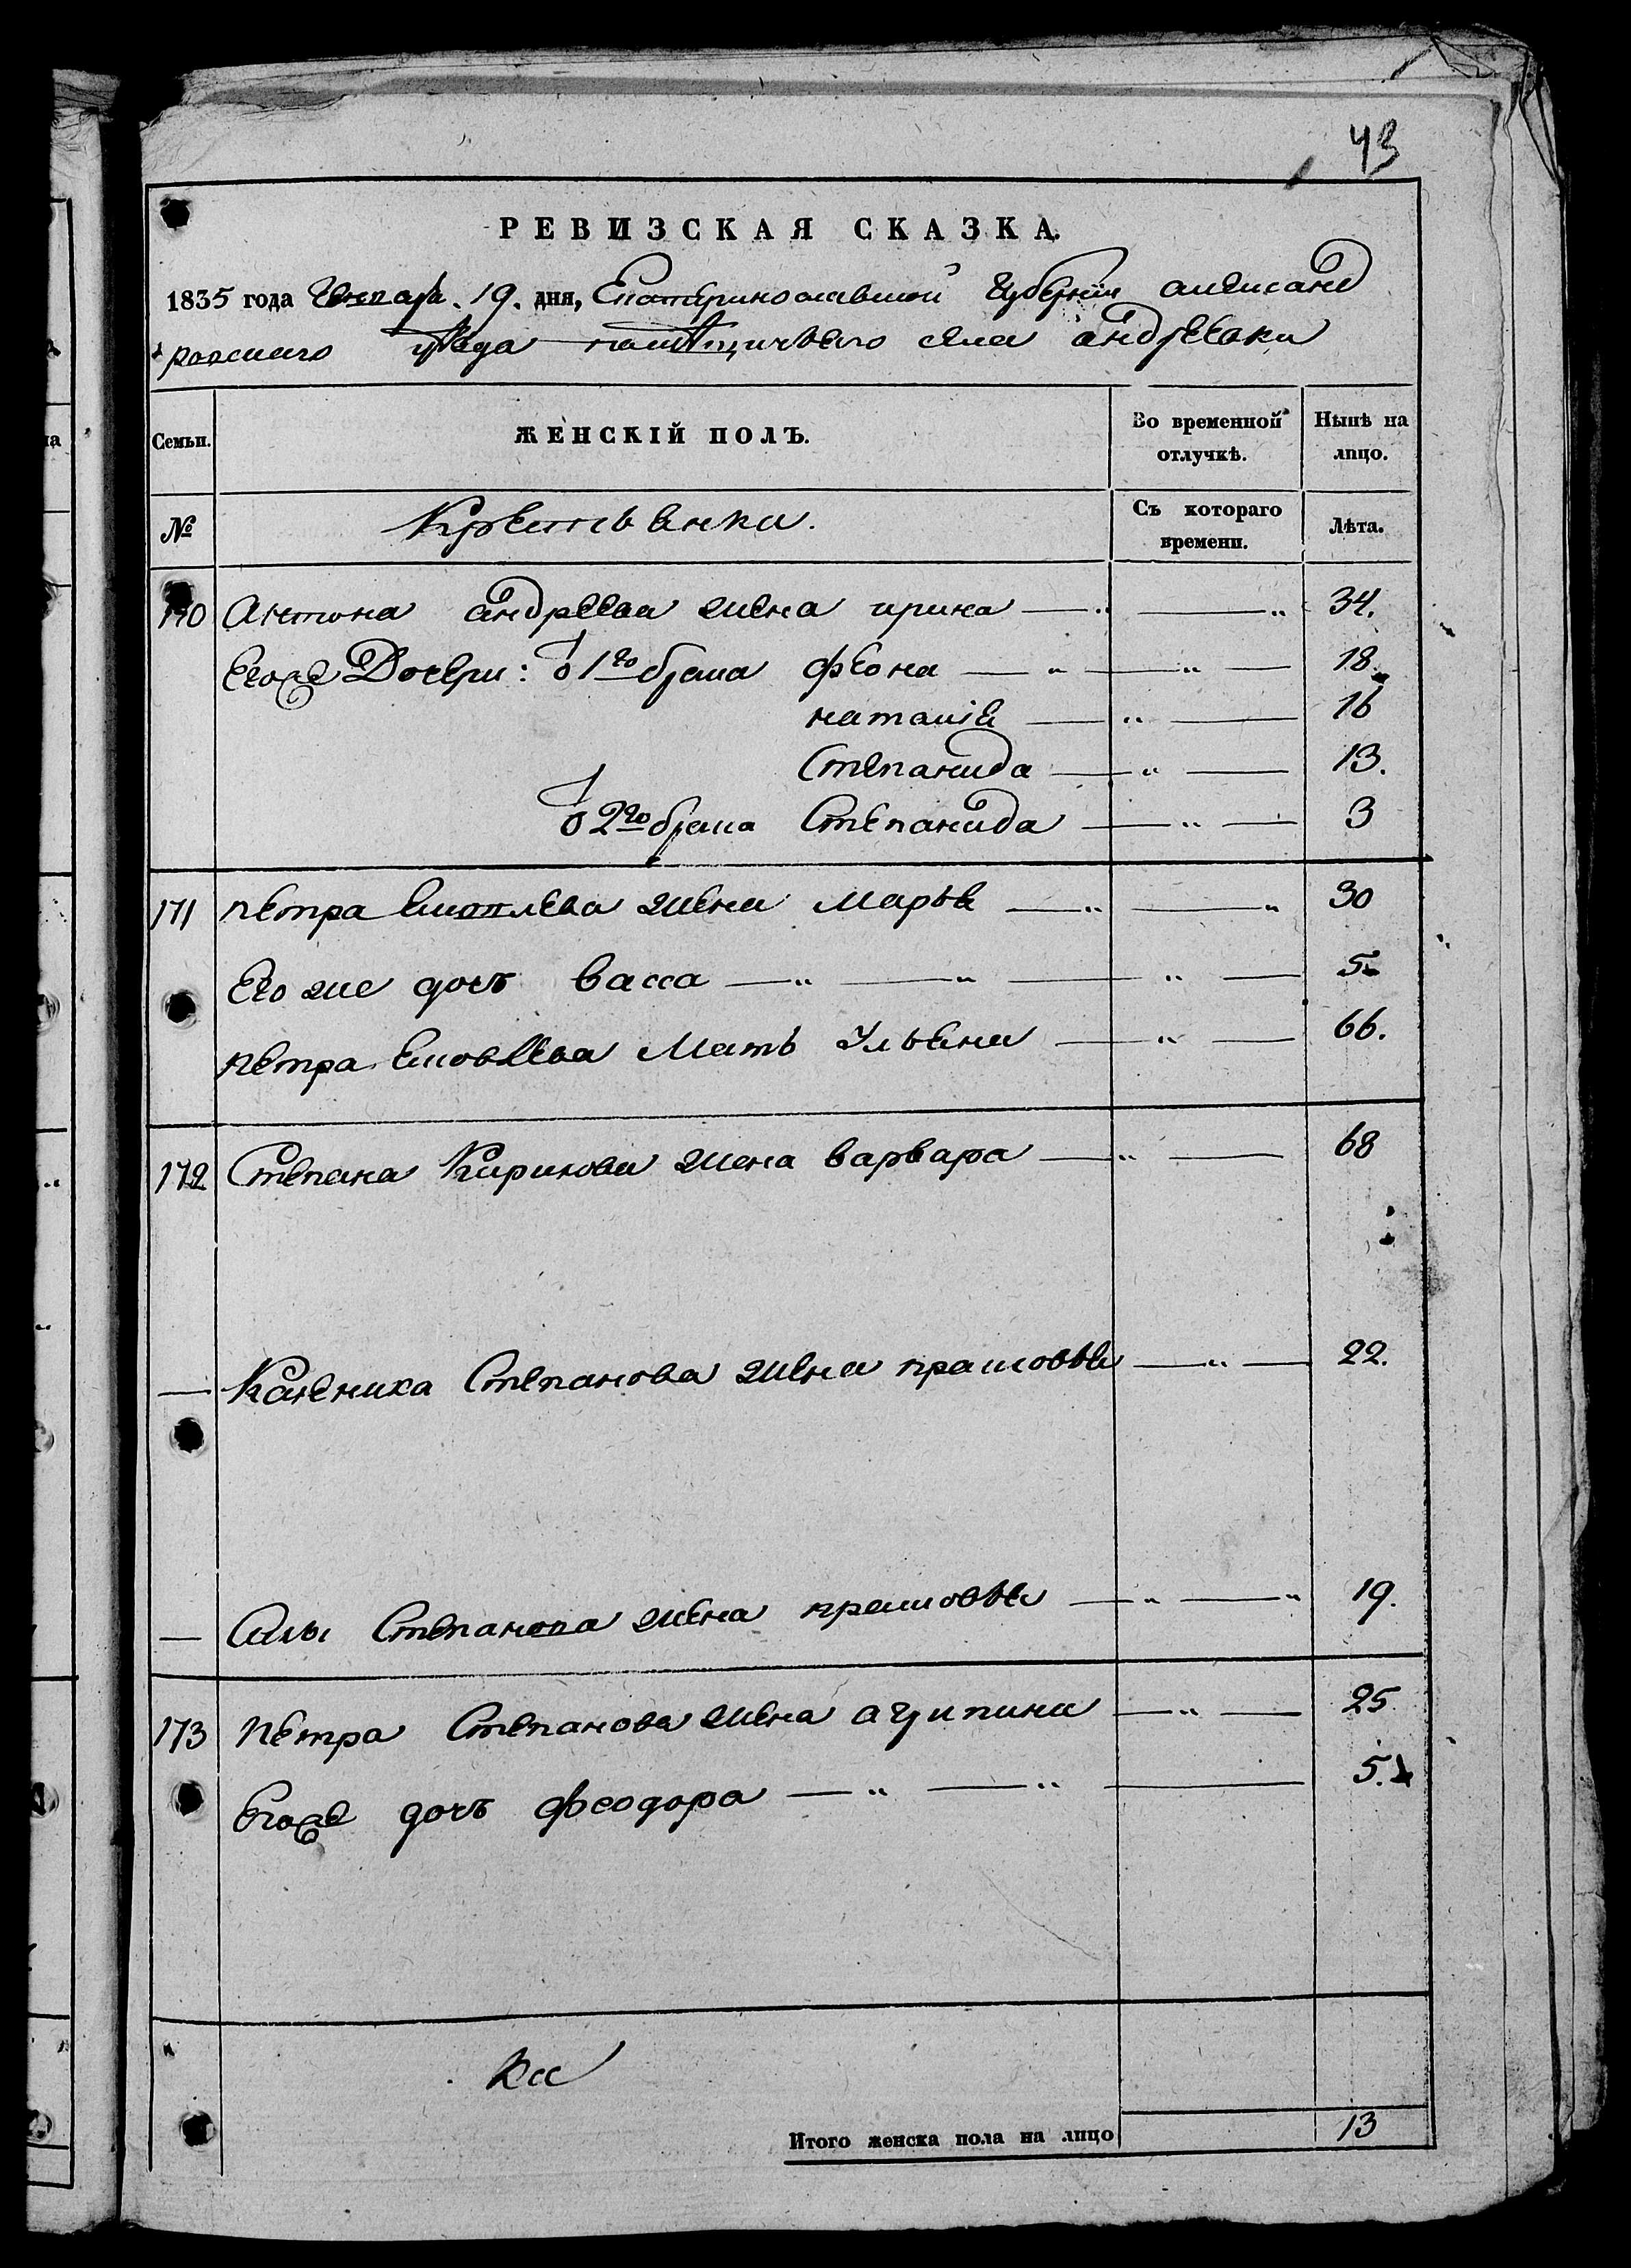 43
РЕВИЗСКАЯ СКАЗКА.
1835 года Генваря. 19. дня, Екатеринославской Губернiи александ
ровскаго уѣзда помѣщичьяго села андреевки
Семьи. ЖЕНСКIЙ ПОЛЪ. Во временной отлучкѣ. Нынѣ на лицо.
№ Крестьянки. Съ котораго времени. Лѣта.
170 Антона андреева жена ирина — „ — „ 34.
Егоже Дочери: о 1го брака фiона — „ — „ — 18.
наталiя — „ — 16
Степанида — „ — 13.
о 2го брака Степанида — „ — 3
171 петра Яковлева жена Марья — „ — „ 30
Его же дочь васса — „ — „ — „ — 5
петра Яковлева Мать Ульяна — „ — 66.
172 Степана Кирилова жена варвара — „ — 68
— Каленика Степанова жена прасковья — „ — 22.
— Силы Степанова жена прасковья — „ — „ 19.
173 Петра Степанова жена агрипина — „ — 25
Егоже дочь феодора — „ — „ — 5.
Ка
Итого женска пола на лицо 13